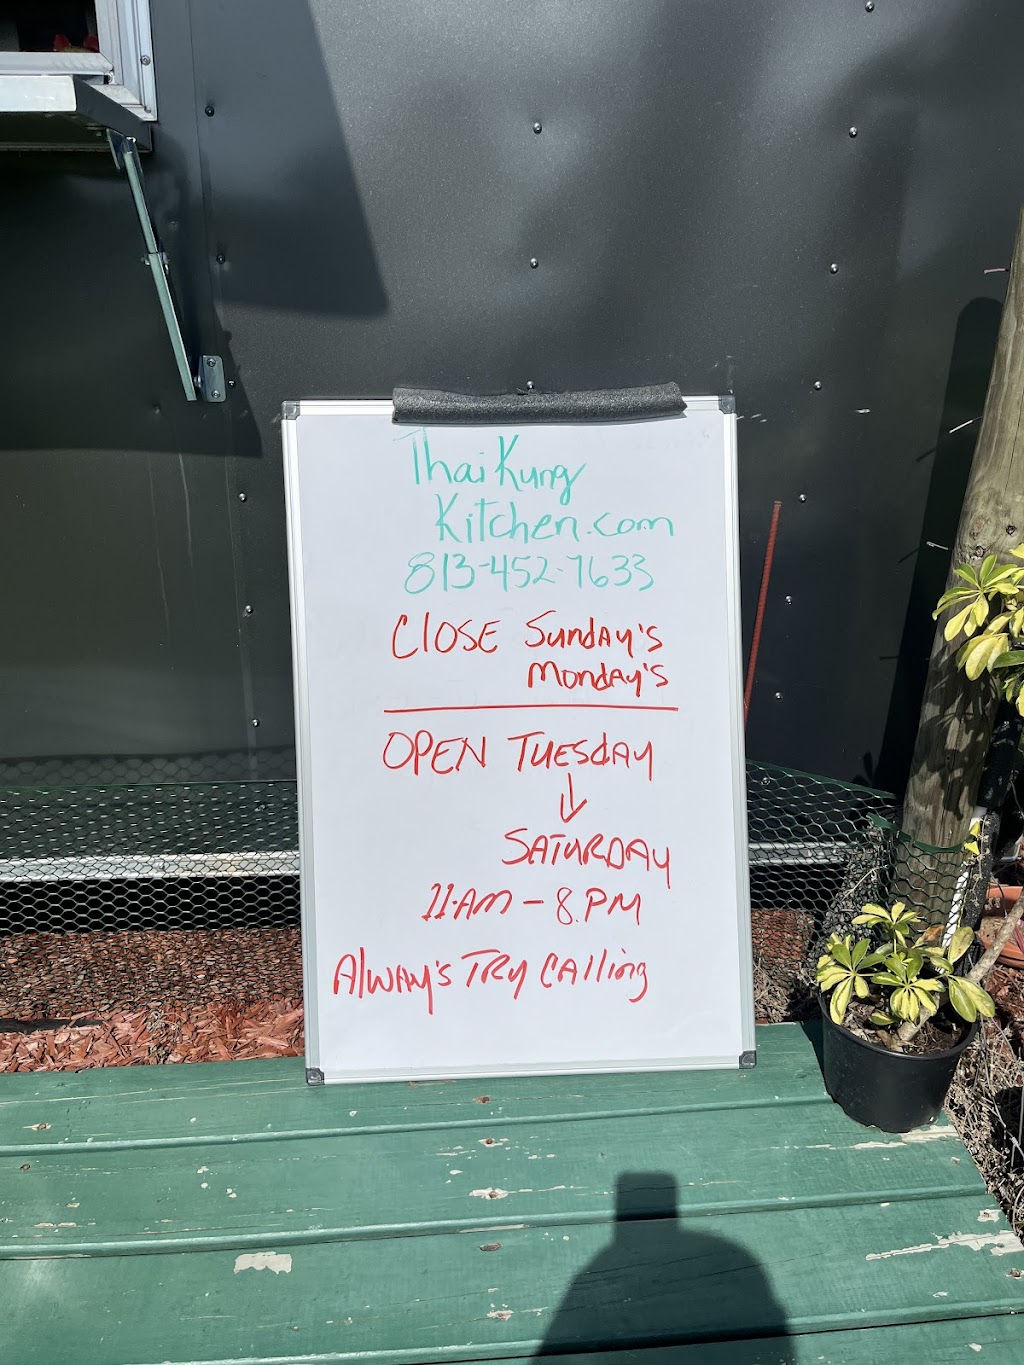 Thai Kung
Kitchen.com
813-452-7633
CLOSE Sunday's
Monday's
OPEN TUESdAY
↓
SATURDAY
11-AM - 8.PM
Always TRY CAlling